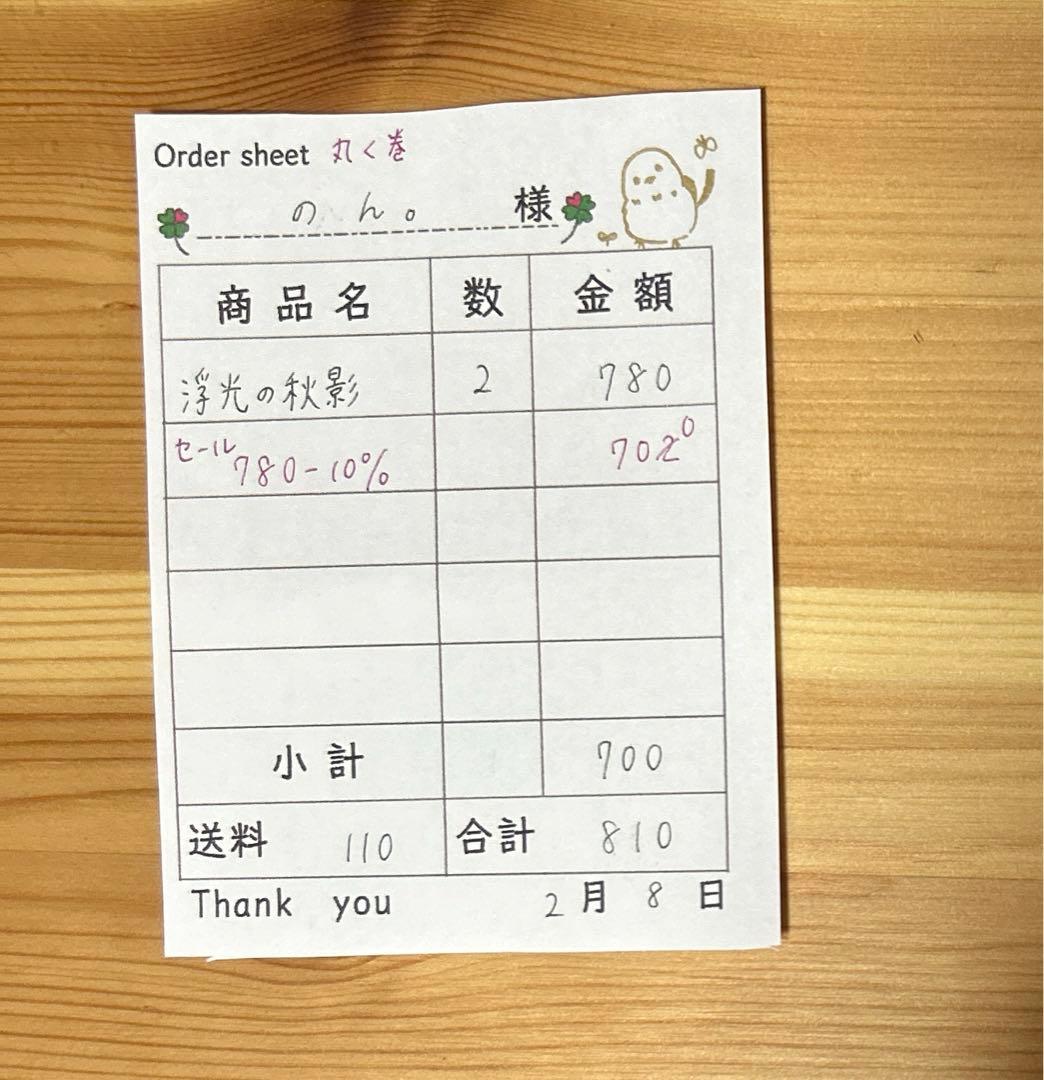 Order sheet 丸く巻
のん。 様
商品名 数 金額
浮光の秋影 2 780
セール 780-10% 700
小計 700
送料 110 合計 810
Thank you 2月 8日